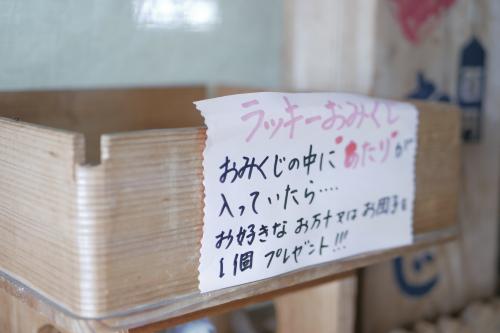 ラッキーおみくじ
おみくじの中に"あたり"が
入っていたら....
お好きな お万十又は お団子を
1個 プレゼント!!!